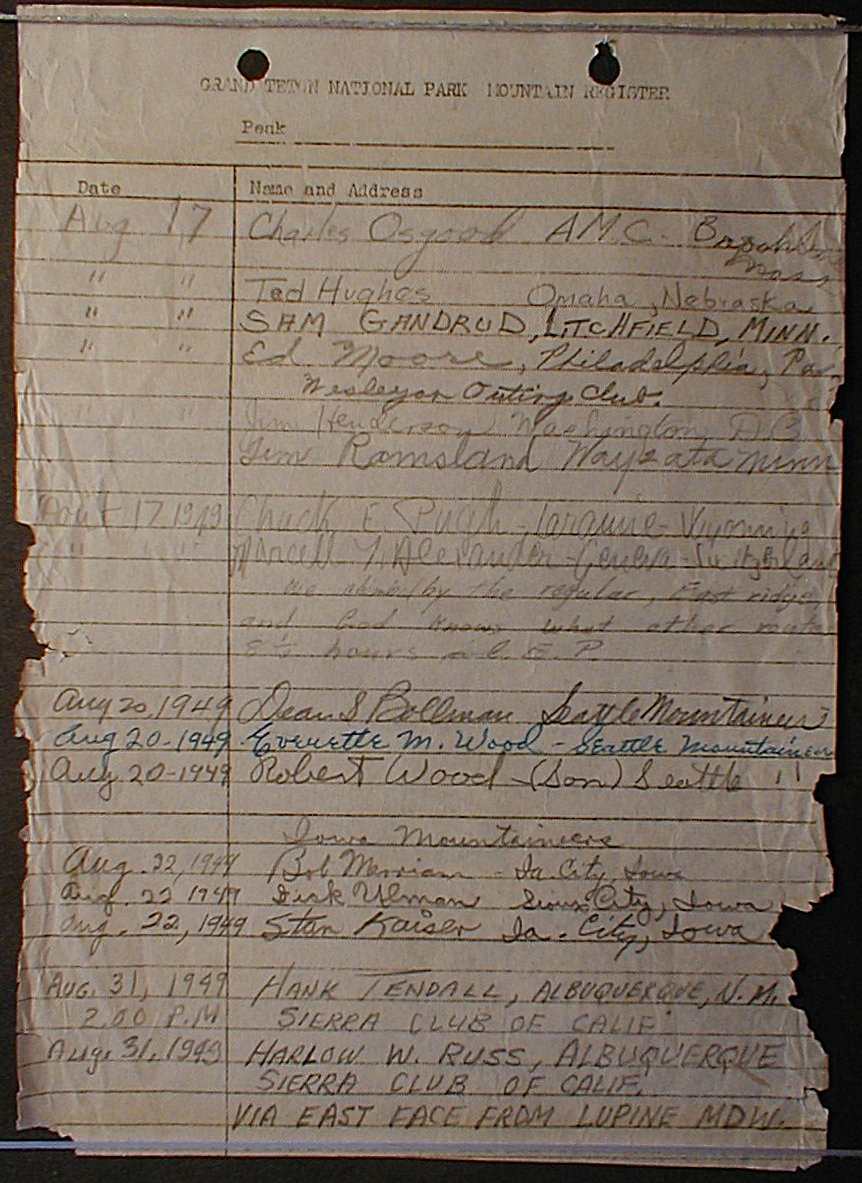 GRAND TETON NATIONAL PARK MOUNTAIN REGISTER
Peak
Date Name and Address
Aug. 17 Charles Osgood A.M.C. Brookline
Mass
" " Ted Hughes Omaha, Nebraska
" " SAM GANDRUD, LITCHFIELD, MINN.
" " Ed Moore, Philadelphia, Pa.
Wesleyan Outing Club.
" " Jim Henderson Washington, D.C.
Jim Ramsland Wayzata Minn
17 1949 Chuck E. Pugh - Laramie - Wyoming
" " Alexander - Geneva - Switzerland
We climb by the regular, East ridge,
and God knows what other route
8½ hours
Aug 20, 1949 Dean S Bollman Seattle Mountaineers
Aug 20-1949 Everette M. Wood - Seattle Mountaineers
Aug 20-1949 Robert Wood - (Son) Seattle "
Iowa Mountaineers
Aug. 22, 1949 Bob Merriam - Ia. City, Iowa
Aug. 22 1949 Dick Ulman Sioux City, Iowa
Aug. 22, 1949 Stan Kaiser Ia. City, Iowa
AUG. 31, 1949 HANK TENDALL, ALBUQUERQUE, N.M.
2:00 P.M SIERRA CLUB OF CALIF
Aug. 31, 1949 HARLOW W. RUSS, ALBUQUERQUE
SIERRA CLUB OF CALIF.
VIA EAST FACE FROM LUPINE MDW.